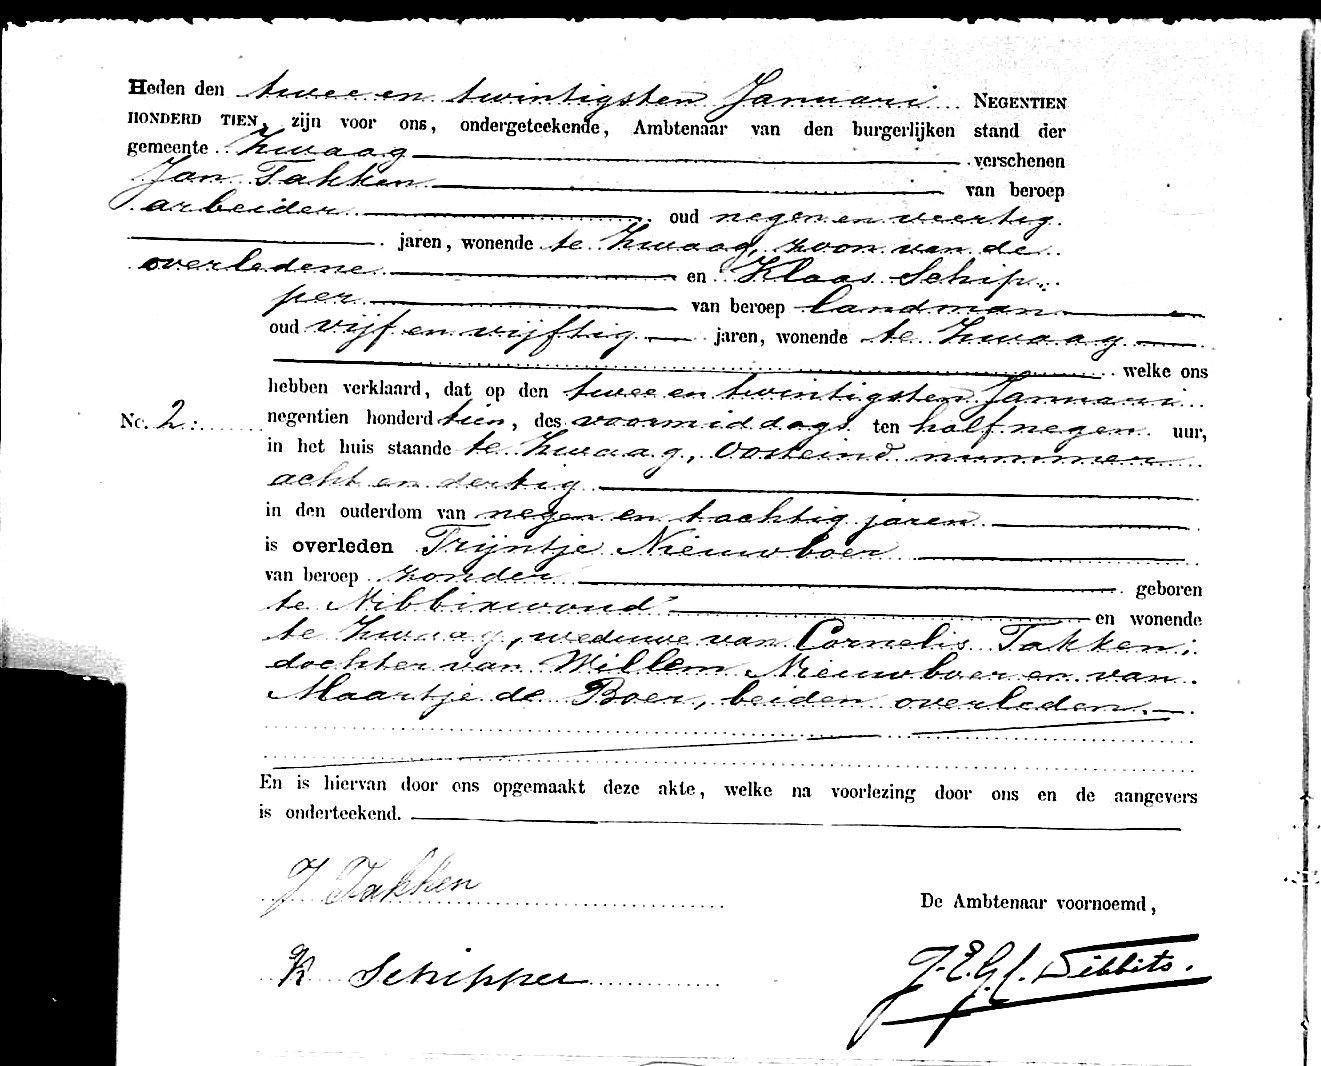 Heden den twee en twintigsten Januari NEGENTIEN
HONDERD TIEN, zijn voor ons, ondergeteekende, Ambtenaar van den burgerlijken stand der
gemeente Zwaag verschenen
Jan Takken van beroep
arbeider oud negen en veertig
jaren, wonende te Zwaag, zoon van de
overledene en Klaas Schip-
per van beroep landman
oud vijf en vijftig jaren, wonende te Zwaag
welke ons
hebben verklaard, dat op den twee en twintigsten Januari
No. 2. negentien honderd tien, des voormiddags ten half negen uur,
in het huis staande te Zwaag, Oosteind nummer
acht en dertig
in den ouderdom van negen en tachtig jaren
is overleden Trijntje Nieuwboer
van beroep zonder geboren
te Nibbixwoud en wonende
te Zwaag, weduwe van Cornelis Takken;
dochter van Willem Nieuwboer en van
Maartje de Boer, beiden overleden.
En is hiervan door ons opgemaakt deze akte, welke na voorlezing door ons en de aangevers
is onderteekend.
J Takken
De Ambtenaar voornoemd,
K Schipper
J. E. G. C. Sibbits.